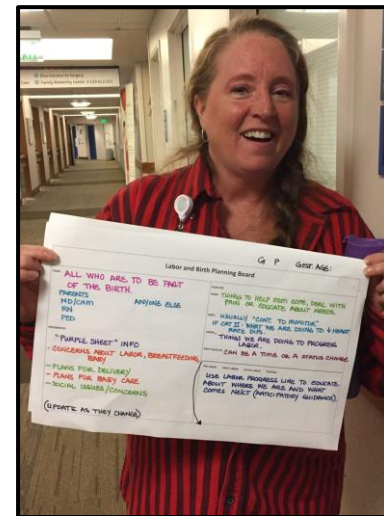 Labor and Birth Planning Board
G P Gest. Age:
ALL WHO ARE TO BE PART
OF THE BIRTH.
PARENTS
MD/CNM ANYONE ELSE
RN
PED
"PURPLE SHEET" INFO
- CONCERNS ABOUT LABOR, BREASTFEEDING,
BABY
- PLANS FOR DELIVERY
- PLANS FOR BABY CARE
- SOCIAL ISSUES/CONCERNS
(UPDATE AS THEY CHANGE)
THINGS TO HELP MOM COPE, DEAL WITH
PAIN OR EDUCATE ABOUT NEEDS.
USUALLY "CONT. TO MONITOR"
IF CAT II: WHAT WE ARE DOING TO HEART
RATE DIPS.
THINGS WE ARE DOING TO PROGRESS
LABOR.
CAN BE A TIME OR A STATUS CHANGE
USE LABOR PROGRESS LINE TO EDUCATE
ABOUT WHERE WE ARE AND WHAT
COMES NEXT (ANTICIPATORY GUIDANCE).